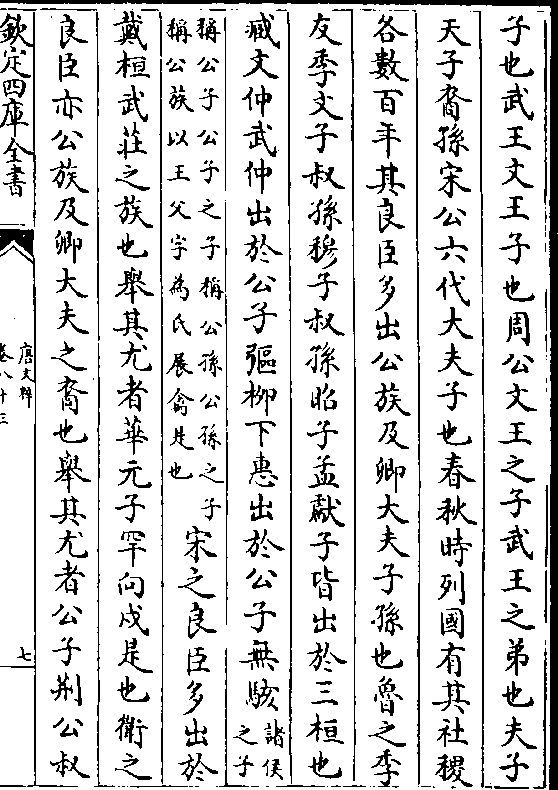 子也武王文王子也周公文王之子武王之弟也夫子
天子裔孫宋公六代大夫子也春秋時列國有其社稷
各數百年其良臣多出公族及卿大夫子孫也魯之季
友季文子叔孫穆子叔孫昭子孟獻子皆出於三桓也
臧文仲武仲出於公子彄柳下惠出於公子無駭諸侯之子
稱公子公子之子稱公孫公孫之子
稱公族以王父字為氏展禽是也
宋之良臣多出於
戴桓武莊之族也舉其尤者華元子罕向戌是也衛之
良臣亦公族及卿大夫之裔也舉其尤者公子荆公叔
欽定四庫全書
唐文粹
卷八十三
七